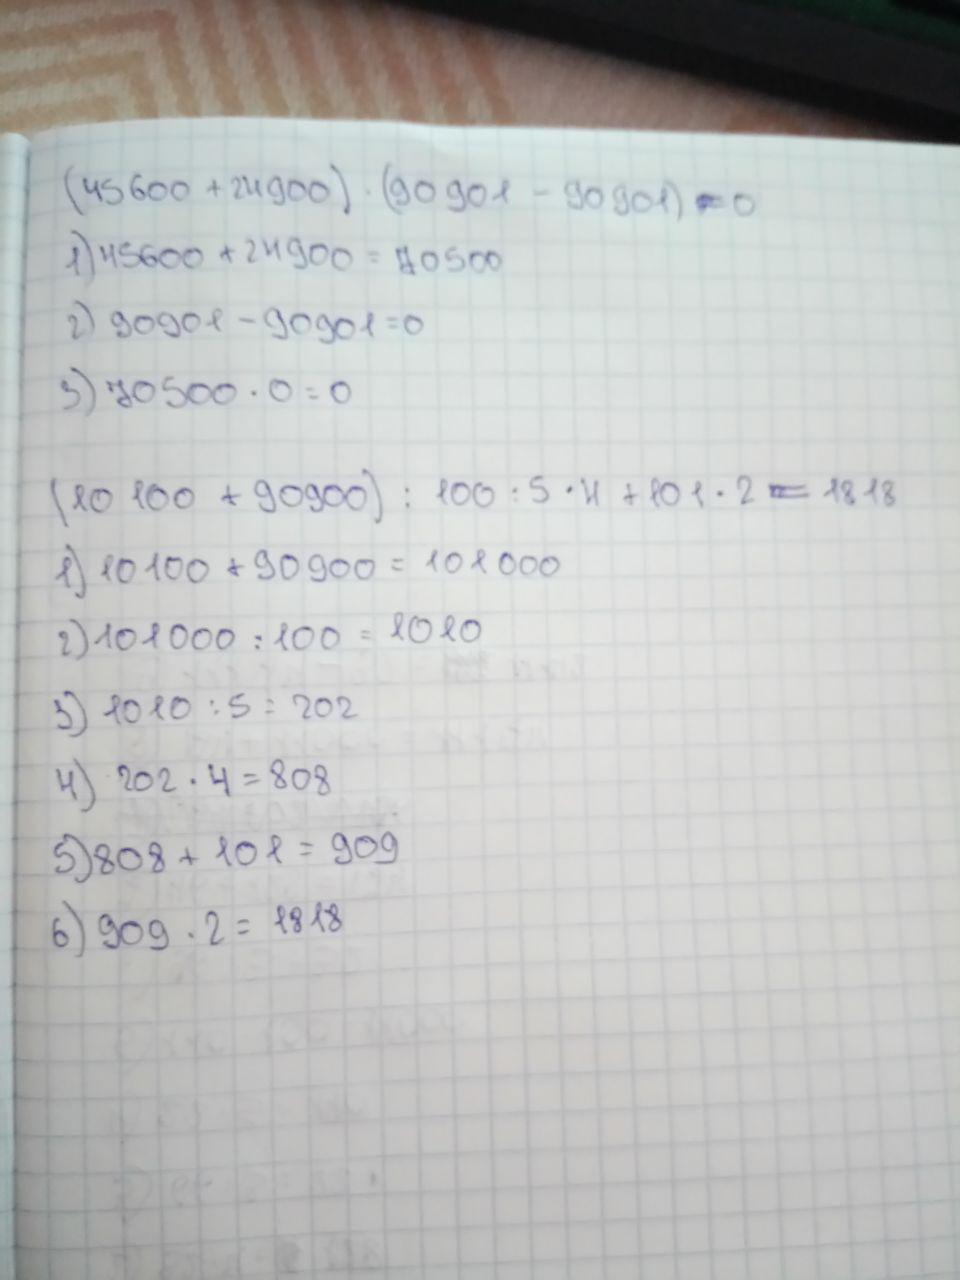 (45600 + 24900) · (90901 - 90901) = 0
1) 45600 + 24900 = 70500
2) 90901 - 90901 = 0
3) 70500 · 0 = 0
(10 100 + 90900) : 100 : 5 · 4 + 101 · 2 = 1818
1) 10100 + 90900 = 101000
2) 101000 : 100 = 1010
3) 1010 : 5 = 202
4) 202 · 4 = 808
5) 808 + 101 = 909
6) 909 · 2 = 1818